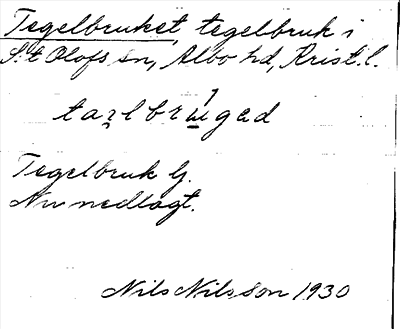 Tegelbruket, tegelbruk i
S:t Olofs sn, Albo hd, Krist. l.
Tegelbruk G.
Nu nedlagt.
Nils Nilsson 1930